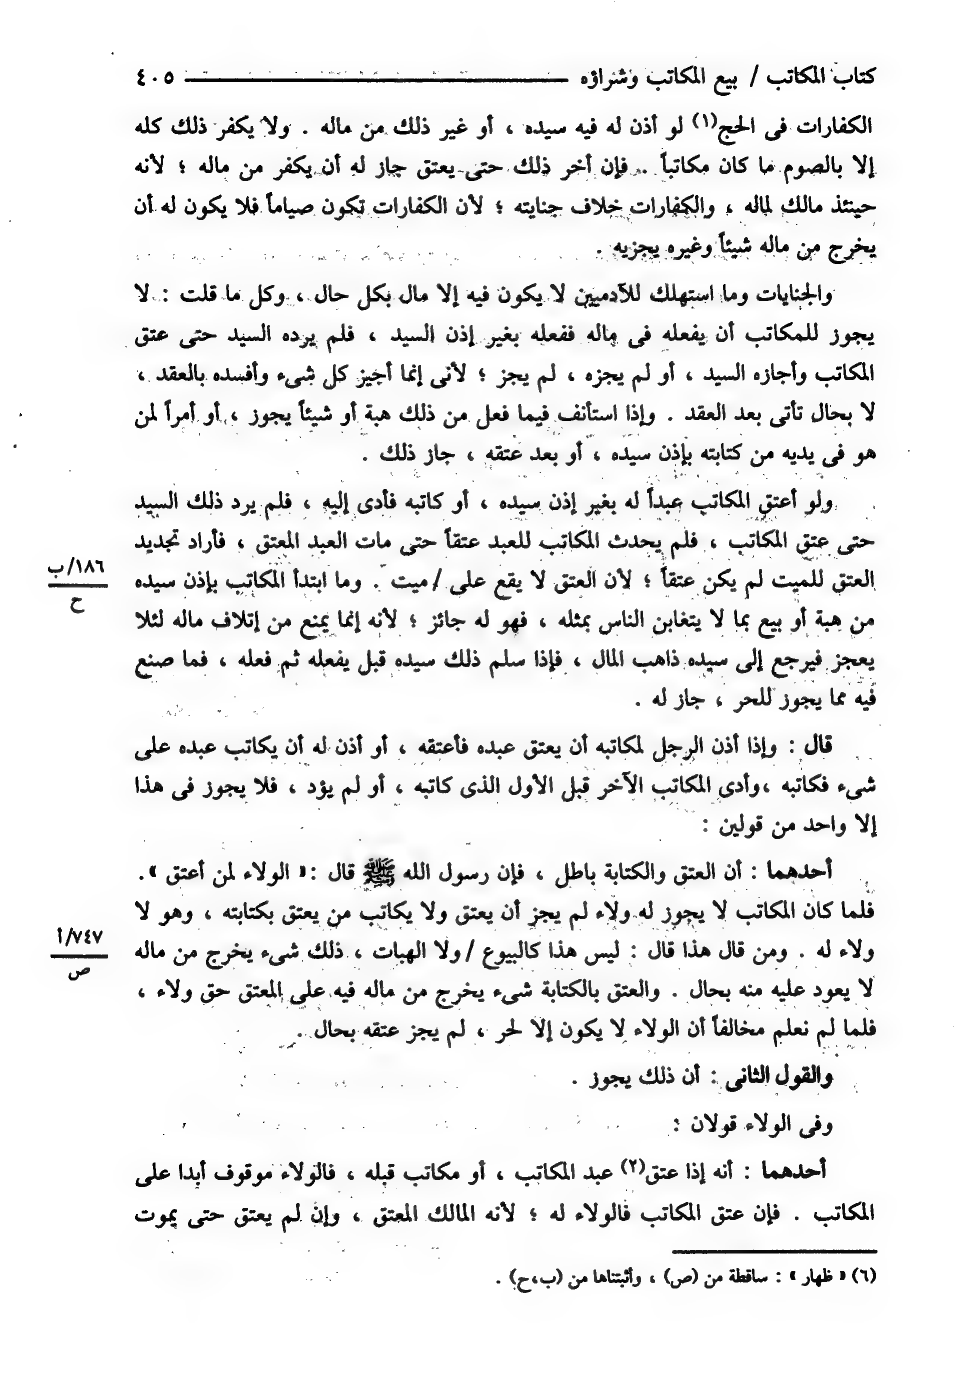 كتاب المكاتب / بيع المكاتب وشراؤه ـــــــ ٤٠٥
الكفارات فى الحج(١) لو أذن له فيه سيده ، أو غير ذلك من ماله . ولا يكفر ذلك كله
إلا بالصوم ما كان مكاتباً . فإن أخر ذلك حتى يعتق جاز له أن يكفر من ماله ؛ لأنه
حينئذ مالك لماله ، والكفارات خلاف جنايته ؛ لأن الكفارات تكون صياماً فلا يكون له أن
يخرج من ماله شيئاً وغيره يجزيه .
والجنايات وما استهلك للآدميين لا يكون فيه إلا مال بكل حال ، وكل ما قلت : لا
يجوز للمكاتب أن يفعله فى ماله ففعله بغير إذن السيد ، فلم يرده السيد حتى عتق
المكاتب وأجازه السيد ، أو لم يجزه ، لم يجز ؛ لأنى إنما أجيز كل شىء وأفسده بالعقد ،
لا بحال تأتى بعد العقد . وإذا استأنف فيما فعل من ذلك هبة أو شيئاً يجوز ، أو أمراً لمن
هو فى يديه من كتابته بإذن سيده ، أو بعد عتقه ، جاز ذلك .
ولو أعتق المكاتب عبداً له بغير إذن سيده ، أو كاتبه فأدى إليه ، فلم يرد ذلك السيد
حتى عتق المكاتب ، فلم يحدث المكاتب للعبد عتقاً حتى مات العبد المعتق ، فأراد تجديد
العتق للميت لم يكن عتقاً ؛ لأن العتق لا يقع على / ميت . وما ابتدأ المكاتب بإذن سيده
١٨٦/ب
ح
من هبة أو بيع بما لا يتغابن الناس بمثله ، فهو له جائز ؛ لأنه إنما يمنع من إتلاف ماله لئلا
يعجز فيرجع إلى سيده ذاهب المال ، فإذا سلم ذلك سيده قبل يفعله ثم فعله ، فما صنع
فيه مما يجوز للحر ، جاز له .
قال : وإذا أذن الرجل لمكاتبه أن يعتق عبده فأعتقه ، أو أذن له أن يكاتب عبده على
شىء فكاتبه ، وأدى المكاتب الآخر قبل الأول الذى كاتبه ، أو لم يؤد ، فلا يجوز فى هذا
إلا واحد من قولين :
أحدهما : أن العتق والكتابة باطل ، فإن رسول الله ﷺ قال : « الولاء لمن أعتق » .
فلما كان المكاتب لا يجوز له ولاء لم يجز أن يعتق ولا يكاتب من يعتق بكتابته ، وهو لا
ولاء له . ومن قال هذا قال : ليس هذا كالبيوع / ولا الهبات ، ذلك شىء يخرج من ماله
٧٤٧/أ
ص
لا يعود عليه منه بحال . والعتق بالكتابة شىء يخرج من ماله فيه على المعتق حق ولاء ،
فلما لم نعلم مخالفاً أن الولاء لا يكون إلا لحر ، لم يجز عتقه بحال .
والقول الثانى : أن ذلك يجوز .
وفى الولاء قولان :
أحدهما : أنه إذا عتق(٢) عبد المكاتب ، أو مكاتب قبله ، فالولاء موقوف أبدا على
المكاتب . فإن عتق المكاتب فالولاء له ؛ لأنه المالك المعتق ، وإن لم يعتق حتى يموت
(٦) « ظهار » : ساقطة من (ص) ، وأثبتناها من (ب،ح) .